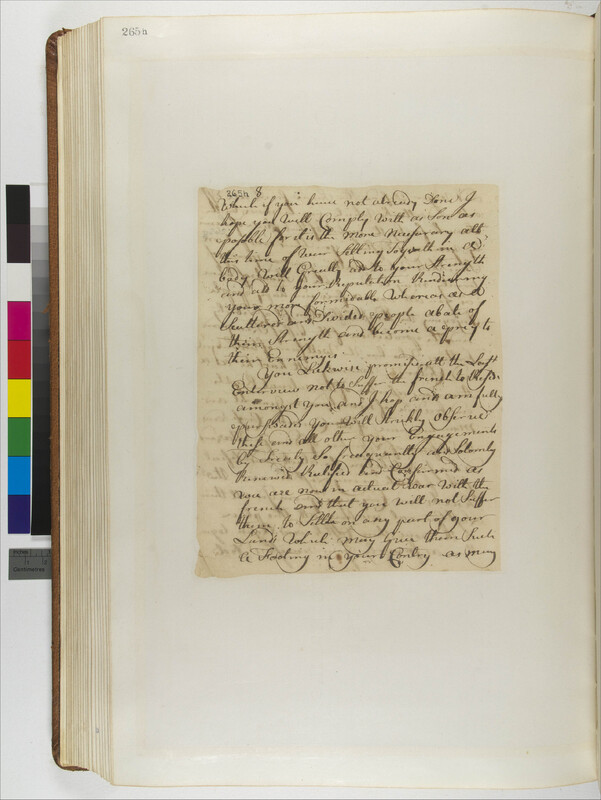 265h
265h 8
Which if you have not already Done I
hope you Will Comply With as Son as
possible for it is the More Necessary att
this time of Warr Setling Together in a
body Will Greatly ad to your Strength
and also to your Reputation Rendering
your more formidable Whereas as a
Scattered and Divided people abate of
their Strength and become a prey to
their Ennimys
You Likwise promised att the Last
Enterview not to Suffer the french to Reside
amongst You and I hop and am fully
perswaded You Will Strickly Observe
these and all other your Engagements
by treaty So frequently and Solomly
Renewed Ratified and Confirmed as
you are now in actual Warr With the
french and that you will not Suffer
them to Settle on any part of your
Lands Which may Give them Such
a Footing in your Contry as may
Inches
Centimetres